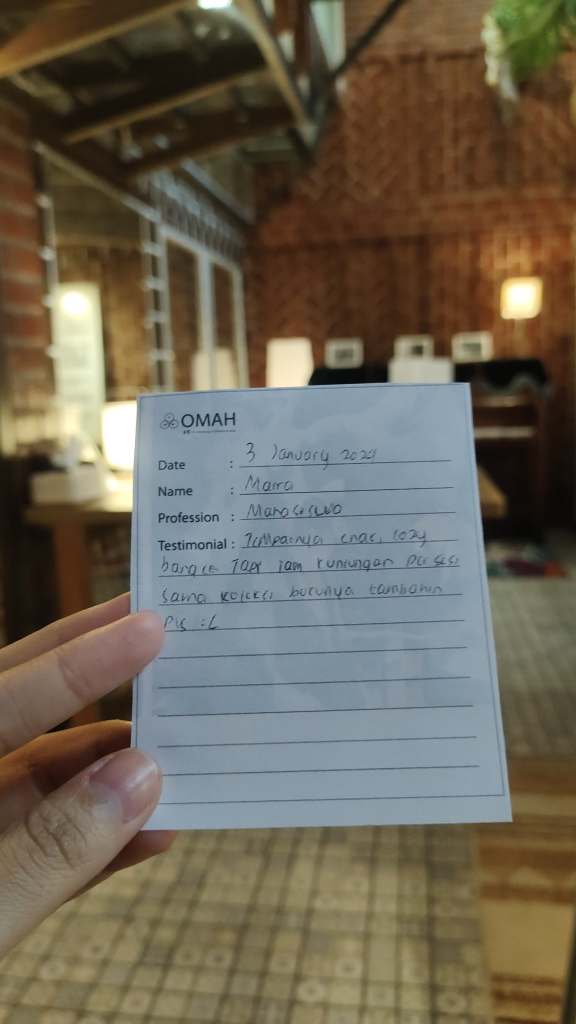 OMAH
Date : 3 January 2024
Name : Maira
Profession : Mahasiswa
Testimonial : Tempatnya enak, cozy
banget. Tapi jam kunjungan per sesi
sama koleksi bukunya tambahin
pls :(